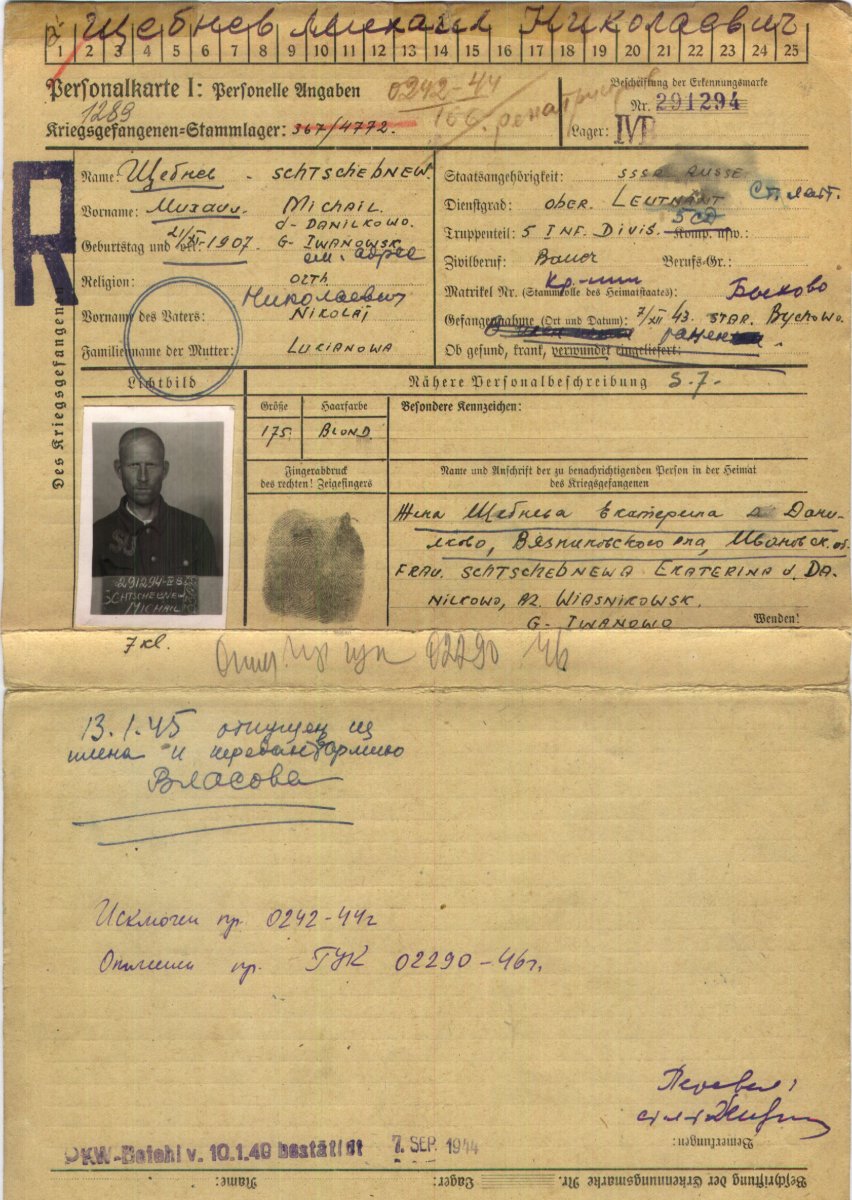 Щебнев Михаил Николаевич
1 2 3 4 5 6 7 8 9 10 11 12 13 14 15 16 17 18 19 20 21 22 23 24 25
Personalkarte I: Personelle Angaben
0242-44
Beschriftung der Erkennungsmarke
Nr. 291294
1289
Kriegsgefangenen-Stammlager: 367/4772.
Lager: IVB
R
Des Kriegsgefangenen
Name: Щебнев - SCHTSCHEBNEW.
Vorname: Михаил. MICHAIL.
d- DANILKOWO.
Geburtstag und -ort: 21/XI-1907 G- IWANOWSK.
см. адрес
Religion: ORTH
Николаевич
Vorname des Vaters: NIKOLAJ
Familienname der Mutter: LUKIANOWA
Staatsangehörigkeit: SSSR RUSSE
Dienstgrad: OBER. LEUTNANT Ст. лейт.
5 СД
Truppenteil: 5 INF. DIVIS. Komp. usw.:
Zivilberuf: Bauer Berufs-Gr.:
Кр-нин
Matrikel Nr. (Stammrolle des Heimatstaates): Быково
Gefangennahme (Ort und Datum): 7/XII 43. STAR. BYCHOWO.
ранен
Ob gesund, krank, verwundet eingeliefert:
Lichtbild
Nähere Personalbeschreibung S-7-
Größe Haarfarbe Besondere Kennzeichen:
175. BLOND.
Fingerabdruck
des rechten! Zeigefingers
Name und Anschrift der zu benachrichtigenden Person in der Heimat
des Kriegsgefangenen
Жена Щебнева Екатерина д Дани-
лково, Вязниковского р-на, Ивановск. об.
FRAU. SCHTSCHEBNEWA EKATERINA d. DA-
NILKOWO, RZ. WIASNIKOWSK.
G- IWANOWO Wenden!
291294-IVB
SCHTSCHEBNEW
MICHAIL
7 кл.
02290 46
13.1.45 отпущен из
плена и передан в армию
Власова
Исключен пр. 0242-44г
Отменен пр. ГУК 02290-46г.
Перевел:
ст. л-т
Bemerkungen:
OKW-Befehl v. 10.1.40 bestätigt 7. SEP. 1944
Beschriftung der Erkennungsmarke Nr. Lager: Name: